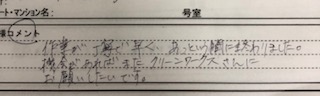 ート・マンション名: 号室
様コメント
作業が丁寧で早く、あっという間に終わりました。
機会があればまた、クリーンワークスさんに
お願いしたいです。